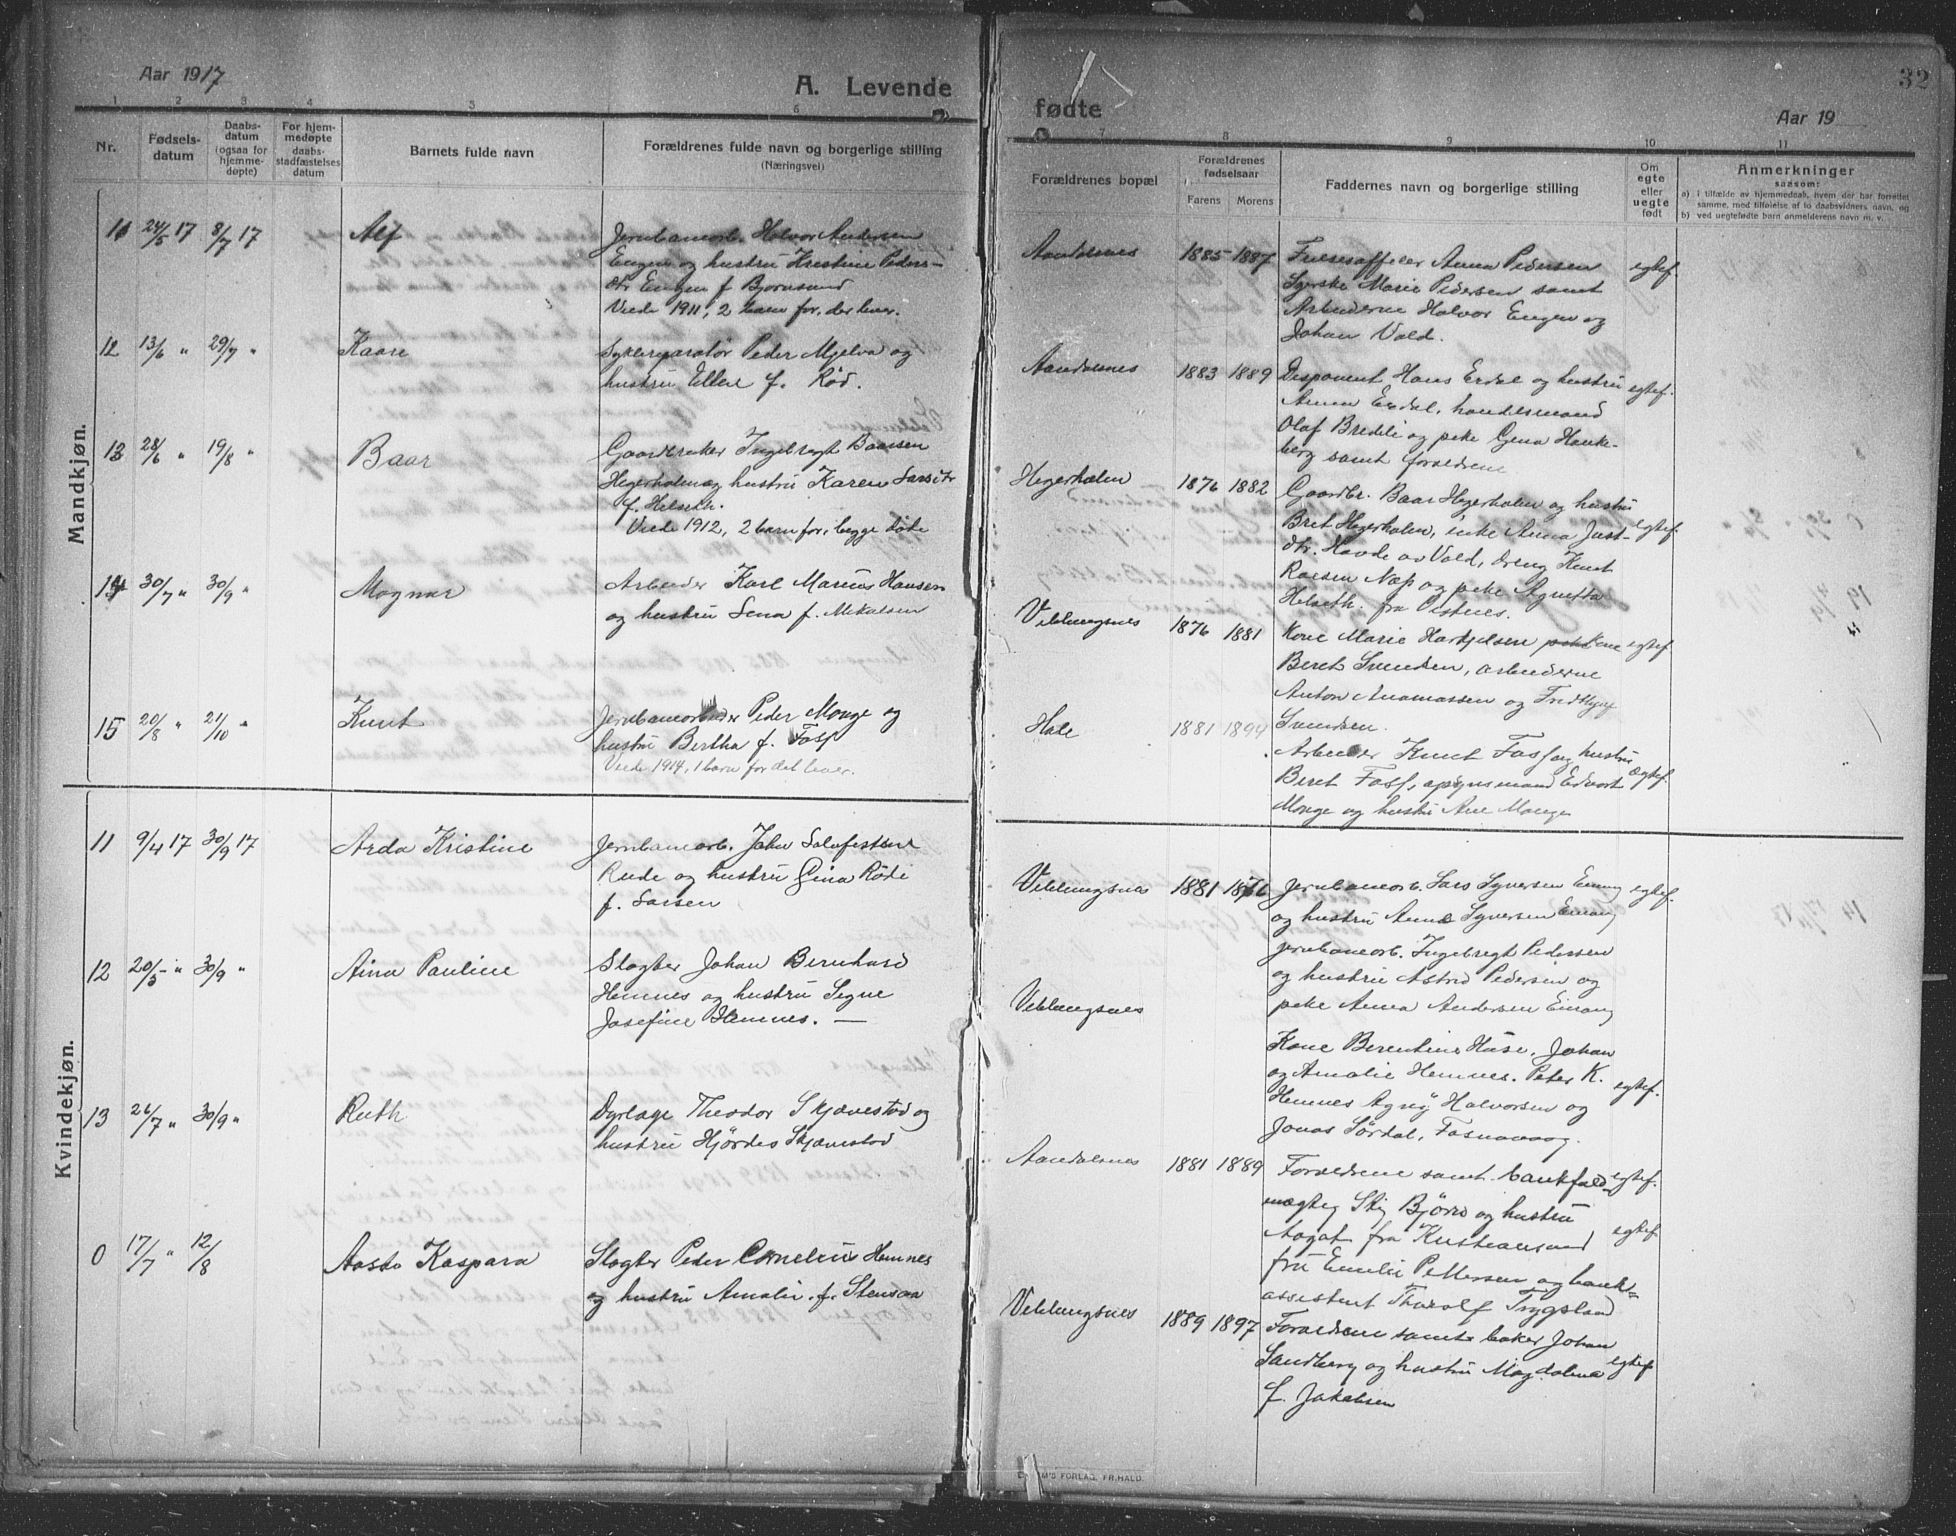 Aar 1917
A. Levende
1 2 3 4 5 6
Nr.
Fødsels-
datum
Daabs-
datum
(ogsaa for
hjemme-
døpte)
For hjem-
medøpte
daabs-
stadfæstelses
datum
Barnets fulde navn
Forældrenes fulde navn og borgerlige stilling
(Næringsvei)
Mandkjøn.
11 24/5 17 8/7 17 Alf
Jernbanearb. Halvor Andersen
Engen og hustru Kristine Peders-
dtr Engen f. Bjørnsund
Viede 1911, 2 barn før, der lever.
12 13/6 " 29/7 " Kaare
Syklereparatør Peder Mjelva og
hustru Ellen f. Rød.
13 28/6 " 19/8 " Baar
Gaardbruker Ingebregt Baarsen
Hegerholm og hustru Karen Larsdtr
f. Helseth.
Viede 1912, 2 barn før, begge døde
14 30/7 " 30/9 " Magnar
Arbeider Karl Marius Hansen
og hustru Lena f. Mikalsen
15 20/8 " 21/10 " Knut
Jernbanearbeider Peder Monge og
hustru Bertha f. Foss
Viede 1914, 1 barn før det lever.
Kvindekjøn.
11 9/4 17 30/9 17 Arda Kristine
Jernbanearb. John
Rude og hustru Gina Rødi
f. Larsen
12 20/5 " 30/9 " Aina Pauline
Slagter Johan Bernhard
Hemnes og hustru Signe
Josefine Hemnes. —
13 26/7 " 30/9 " Ruth
Dyrlæge Theodor Skjævestad og
hustru Hjørdis Skjævestad
0 17/7 " 12/8 Aasta Kaspara
Slagter Peder Cornelius Hemnes
og hustru Amalie f. Stensaa
fødte
Aar 19
32
7 8 9 10 11
Forældrenes bopæl
Forældrenes
fødselsaar
Farens Morens
Faddernes navn og borgerlige stilling
Om
egte
eller
uegte
født
Anmerkninger
saasom:
a) i tilfælde av hjemmedaab, hvem der har forrettet
samme, med tilføielse af to daabsvidners navn, og
b) ved uegtefødte barn anmelderens navn m. v.
Aandalsnes 1885 1887 Anna Pedersen egtef
Syerske Marie Pedersen samt
Arbeiderne Halvor Engen og
Johan Vold.
Aandalsnes 1883 1889 Disponent Hans Erdal og hustru egtef.
Anna Erdal, handelsmand
Olaf Bredeli og pike Gjena Hauke-
berg samt forældrene
Hegerholm 1876 1882 Gaardbr. Baar Hegerholm og hustru
Bret Hegerholm, enke Anna Just- egtef.
dtr. Havde av Vold, dreng Knut
Næs og pike Agnetta
Helseth. fra Vestnes.
Veblungsnes 1876 1881 Kone Marie Hartjelsen kone egtef
Beret Svendsen, arbeiderne
Anton Anamassen og Fredtljof
Svendsen.
Hole 1881 1894
Arbeider Knut Foss og hustru
Beret Foss, opsynsmand Edvart egtef.
Monge og hustru Ane Monge
Veblungsnes 1881 1876 Jernbanearb. Lars Syversen Einang egtef.
og hustru Anne Syversen Einang
jernbanearb. Ingebregt Pedersen
og hustru Astrid Pedersen og
pike Anna Andersen Einang
Veblungsnes
Kone Berentine Huse, Johan
og Amalie Hemnes. Peter K. egtef.
Hemnes Agnø Halvorsen og
Jonas Sørdal, Fosnavaag.
Aandalsnes 1881 1889 Forældrene samt bankfuld- egtef.
mægtig Stig Bjørn og hustru
Aagot fra Kristiansund egtef
fru Emilie Pettersen og bank-
assistent Thoralf Trygsland
Veblungsnes 1889 1897 Forældrene samt baker Johan
Sandberg og hustru Magdalena egtef
f. Jakobsen
FORLAG, FR.HALD.